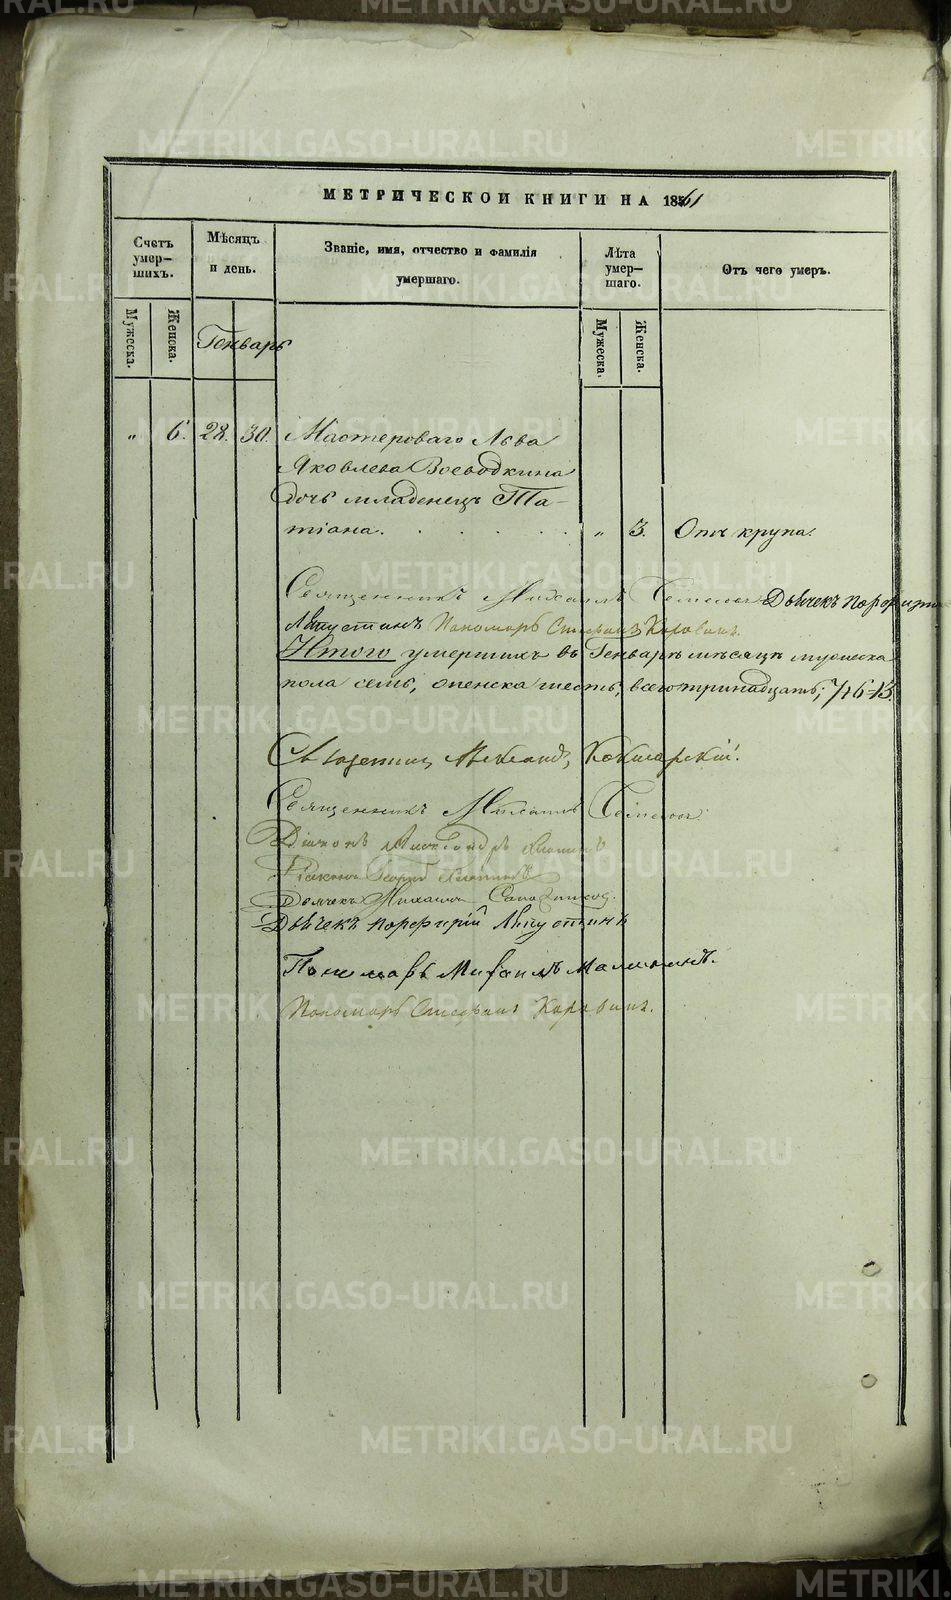 МЕТРИЧЕСКОЙ КНИГИ НА 1861
Счетъ умер-шихъ.
Мѣсяцъ и день.
Званіе, имя, отчество и фамилія умершаго.
Лѣта умер-шаго.
Отъ чего умеръ.
Мужеска.
Женска.
Генварь
Мужеска.
Женска.
„ 6. 28. 30. Мастероваго Льва
Яковлева Воеводкина
дочь младенецъ Та-
тіана. „ 3. Отъ крупа.
Священникъ Михаилъ Дьячекъ Порфирій
Августинъ Пономарь Стефанъ Коровинъ.
Итого умершихъ въ Генварѣ мѣсяцѣ мужеска
пола семь, женска шесть, всего тринадцать; 7+6-13.
Священникъ Михаилъ
Діаконъ Александръ
Діаконъ
Дьячекъ Михаилъ
Дьячекъ Порфирій Августинъ
Пономарь Михаилъ Малининъ.
Пономарь Стефанъ Коровинъ.
METRIKI.GASO-URAL.RU